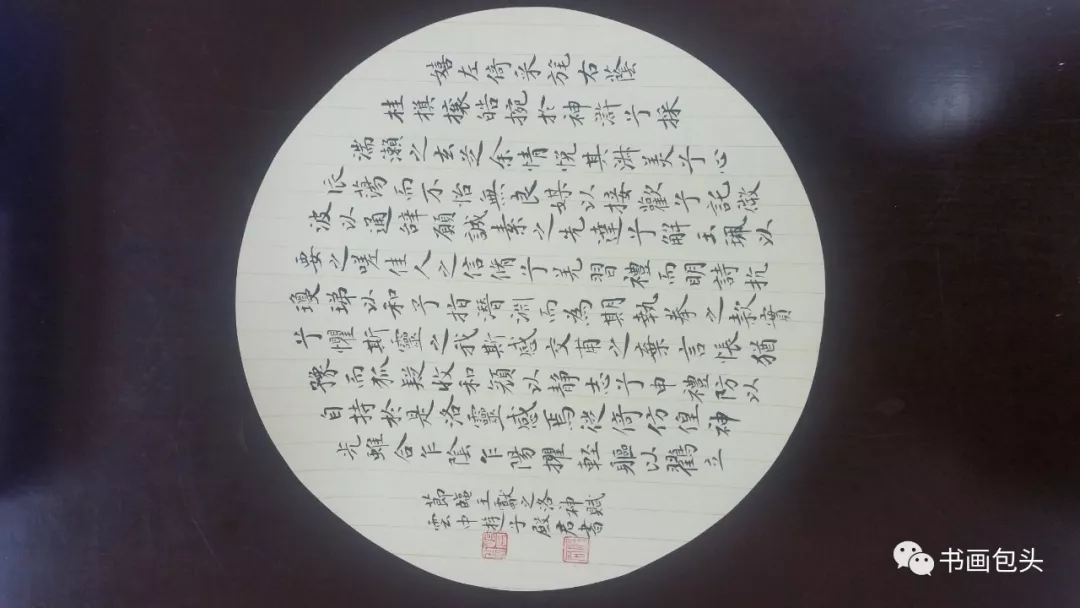 嬉左倚采旄右蔭
桂旗攘皓捥於神滸兮採
湍瀨之玄芝余情悅其淑美兮心
振蕩而不怡無良媒以接歡兮託微
波以通辭願誠素之先達兮解玉珮以
要之嗟佳人之信脩兮羌習禮而明詩抗
瓊珶以和予指潛淵而為期執拳之款實
兮懼斯靈之我斯感交甫之棄言悵猶
豫而狐疑收和顏以靜志兮申禮防以
自持於是洛靈感焉徙倚仿偟神
光離合乍陰乍陽擢輕軀以鶴立
節臨王獻之洛神賦
雲中趙子殿君書
书画包头